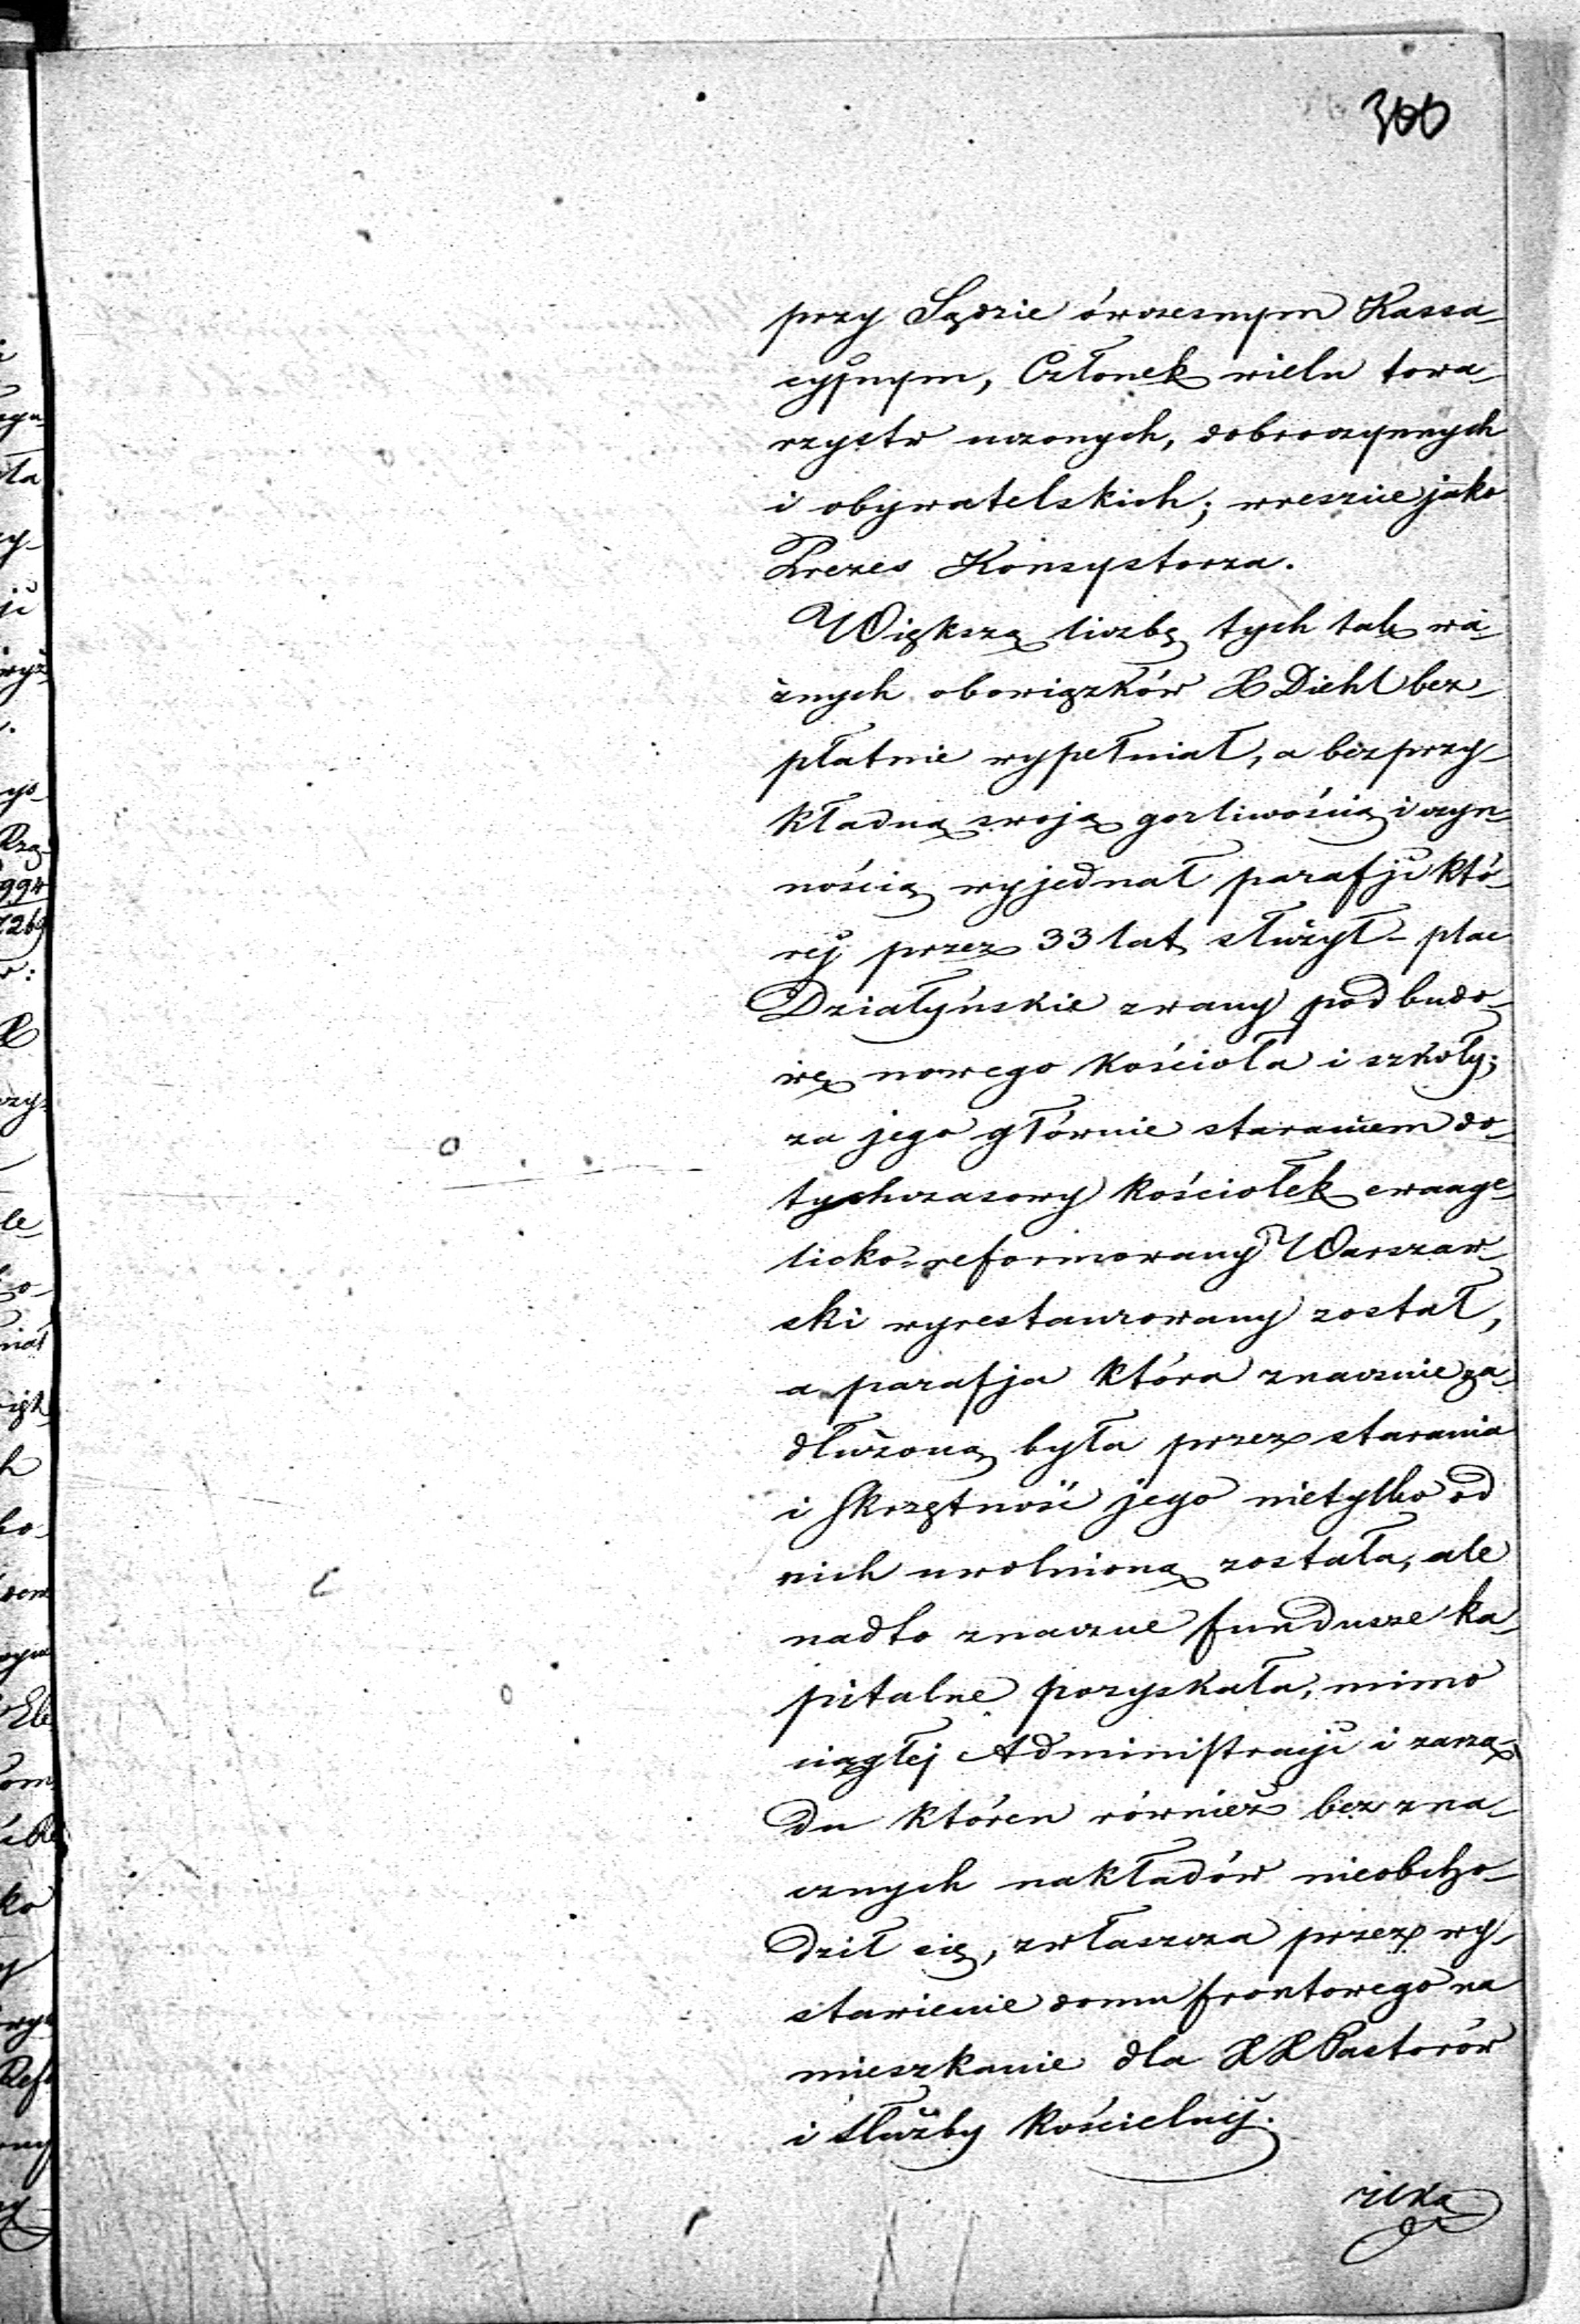 300
przy Sądzie ówczesnym Kassa-
cyjnym, Członek wielu towa-
rzystw uczonych, dobroczynnych
i obywatelskich; wreszcie jako
Prezes Konsystorza.
Większą liczbę tych tak wa-
żnych obowiązków X Diehl bez-
płatnie wypełniał, a bezprzy-
kładną swoją gorliwością i czyn-
nością wyjednał parafji któ-
rej przez 33 lat służył – plac
Działyńskie zwany pod budo-
wę nowego kościoła i szkoły;
za jego głównie staraniem do-
tychczasowy kościołek ewange-
licko-reformowany Warszaw-
ski wyrestaurowany został,
a parafja która znacznie za-
dłużoną była przez starania
i skrzętność jego nietylko od
nich uwolnioną została, ale
nadto znaczne fundusze ka-
pitalne pozyskała, mimo
ciągłej Administracji i zarzą-
du któren również bez zna-
cznych nakładów nieobcho-
dził się, zwłaszcza przez wy-
stawienie domu frontowego na
mieszkanie dla XX Pastorów
i służby kościelnej.